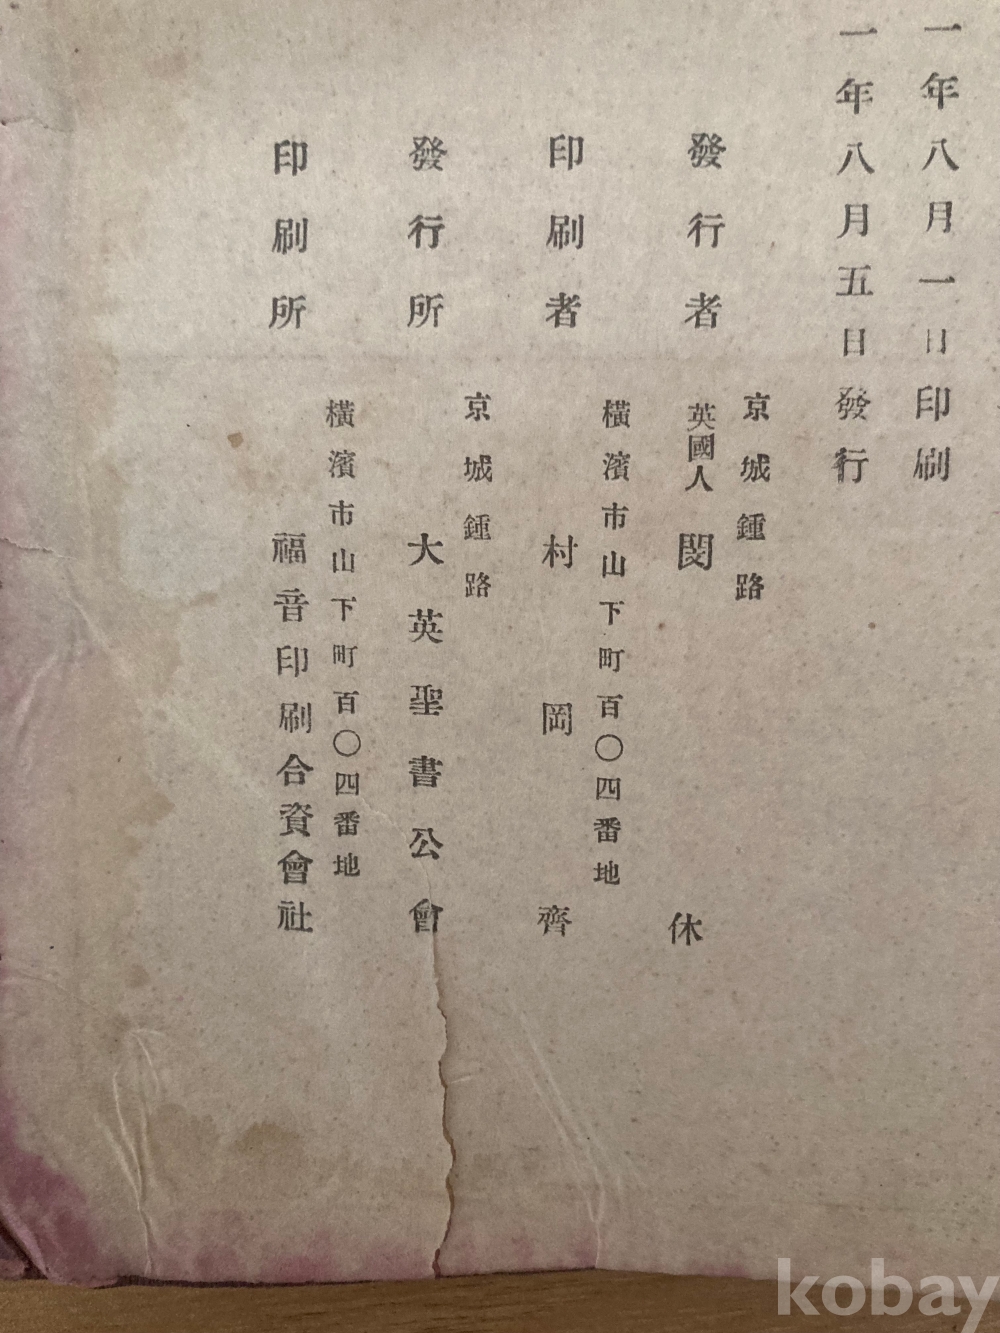 一年八月一日印刷
一年八月五日發行
發行者
京城鍾路
英國人 閔休
印刷者
橫濱市山下町百〇四番地
村岡齊
發行所
京城鍾路
大英聖書公會
印刷所
橫濱市山下町百〇四番地
福音印刷合資會社
kobay